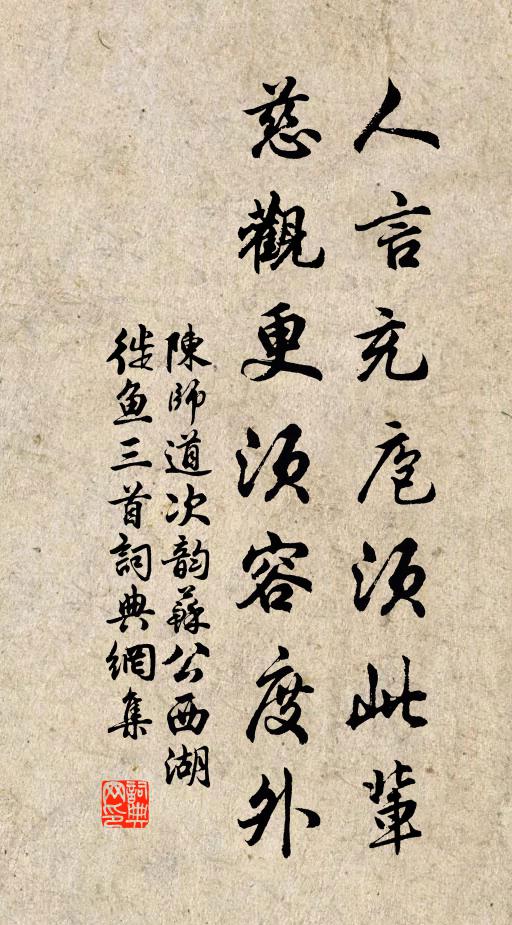 人言充庖須此輩
慈觀更須容度外
陳師道次韵蘇公西湖
徙魚三首詞典網集
詞典
网印